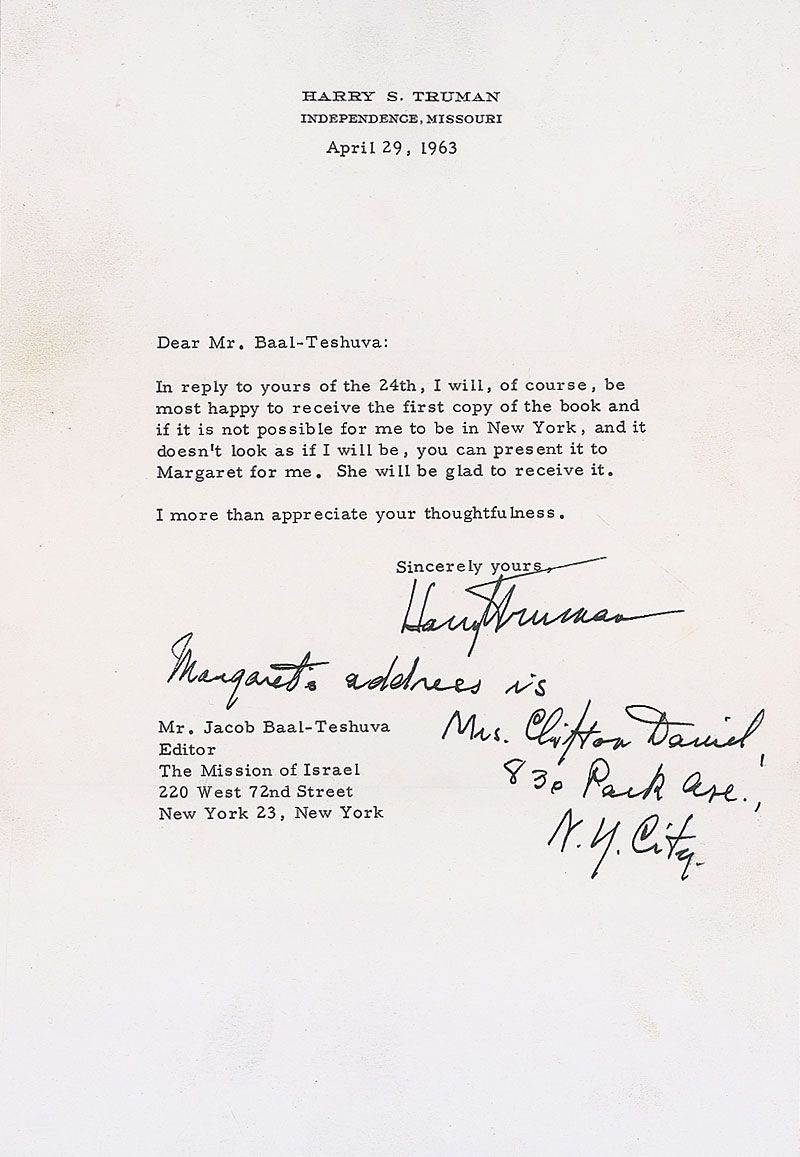 HARRY S. TRUMAN
INDEPENDENCE, MISSOURI
April 29, 1963
Dear Mr. Baal-Teshuva:
In reply to yours of the 24th, I will, of course, be
most happy to receive the first copy of the book and
if it is not possible for me to be in New York, and it
doesn't look as if I will be, you can present it to
Margaret for me. She will be glad to receive it.
I more than appreciate your thoughtfulness.
Sincerely yours,
Harry S Truman
Margaret's address is
Mrs. Clifton Daniel,
830 Park Ave.,
N.Y. City.
Mr. Jacob Baal-Teshuva
Editor
The Mission of Israel
220 West 72nd Street
New York 23, New York